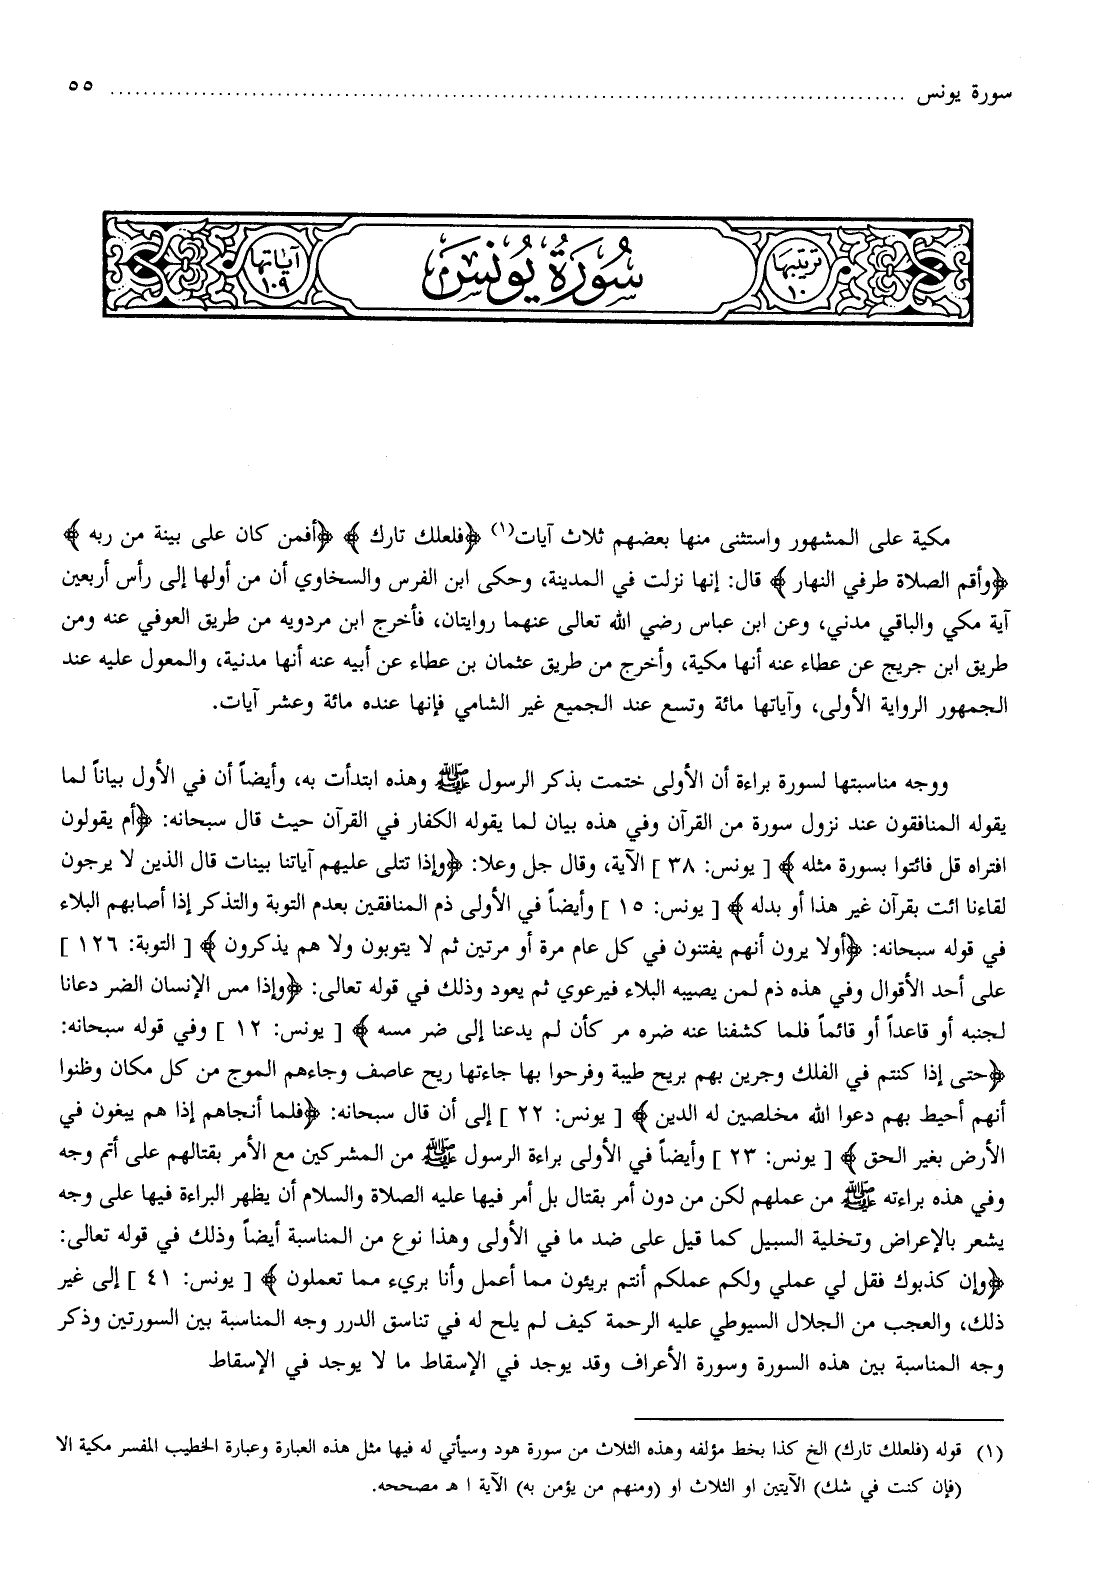 سورة يونس ........................................ ٥٥
ترتيبها ١٠
سُورَةُ يُونُسَ
آياتها ١٠٩
مكية على المشهور واستثنى منها بعضهم ثلاث آيات(١) ﴿فلعلك تارك﴾ ﴿أفمن كان على بينة من ربه﴾
﴿وأقم الصلاة طرفي النهار﴾ قال: إنها نزلت في المدينة، وحكى ابن الفرس والسخاوي أن من أولها إلى رأس أربعين
آية مكي والباقي مدني، وعن ابن عباس رضي الله تعالى عنهما روايتان، فأخرج ابن مردويه من طريق العوفي عنه ومن
طريق ابن جريج عن عطاء عنه أنها مكية، وأخرج من طريق عثمان بن عطاء عن أبيه عنه أنها مدنية، والمعول عليه عند
الجمهور الرواية الأولى، وآياتها مائة وتسع عند الجميع غير الشامي فإنها عنده مائة وعشر آيات.
ووجه مناسبتها لسورة براءة أن الأولى ختمت بذكر الرسول ﷺ وهذه ابتدأت به، وأيضاً أن في الأول بياناً لما
يقوله المنافقون عند نزول سورة من القرآن وفي هذه بيان لما يقوله الكفار في القرآن حيث قال سبحانه: ﴿أم يقولون
افتراه قل فائتوا بسورة مثله﴾ [ يونس: ٣٨ ] الآية، وقال جل وعلا: ﴿وإذا تتلى عليهم آياتنا بينات قال الذين لا يرجون
لقاءنا ائت بقرآن غير هذا أو بدله﴾ [ يونس: ١٥ ] وأيضاً في الأولى ذم المنافقين بعدم التوبة والتذكر إذا أصابهم البلاء
في قوله سبحانه: ﴿أولا يرون أنهم يفتنون في كل عام مرة أو مرتين ثم لا يتوبون ولا هم يذكرون﴾ [ التوبة: ١٢٦ ]
على أحد الأقوال وفي هذه ذم لمن يصيبه البلاء فيرعوي ثم يعود وذلك في قوله تعالى: ﴿وإذا مس الإنسان الضر دعانا
لجنبه أو قاعداً أو قائماً فلما كشفنا عنه ضره مر كأن لم يدعنا إلى ضر مسه﴾ [ يونس: ١٢ ] وفي قوله سبحانه:
﴿حتى إذا كنتم في الفلك وجرين بهم بريح طيبة وفرحوا بها جاءتها ريح عاصف وجاءهم الموج من كل مكان وظنوا
أنهم أحيط بهم دعوا الله مخلصين له الدين﴾ [ يونس: ٢٢ ] إلى أن قال سبحانه: ﴿فلما أنجاهم إذا هم يبغون في
الأرض بغير الحق﴾ [ يونس: ٢٣ ] وأيضاً في الأولى براءة الرسول ﷺ من المشركين مع الأمر بقتالهم على أتم وجه
وفي هذه براءته ﷺ من عملهم لكن من دون أمر بقتال بل أمر فيها عليه الصلاة والسلام أن يظهر البراءة فيها على وجه
يشعر بالإعراض وتخلية السبيل كما قيل على ضد ما في الأولى وهذا نوع من المناسبة أيضاً وذلك في قوله تعالى:
﴿وإن كذبوك فقل لي عملي ولكم عملكم أنتم بريئون مما أعمل وأنا بريء مما تعملون﴾ [ يونس: ٤١ ] إلى غير
ذلك، والعجب من الجلال السيوطي عليه الرحمة كيف لم يلح له في تناسق الدرر وجه المناسبة بين السورتين وذكر
وجه المناسبة بين هذه السورة وسورة الأعراف وقد يوجد في الإسقاط ما لا يوجد في الإسقاط
(١) قوله (فلعلك تارك) الخ كذا بخط مؤلفه وهذه الثلاث من سورة هود وسيأتي له فيها مثل هذه العبارة وعبارة الخطيب المفسر مكية الا
(فإن كنت في شك) الآيتين او الثلاث او (ومنهم من يؤمن به) الآية ا هـ مصححه.